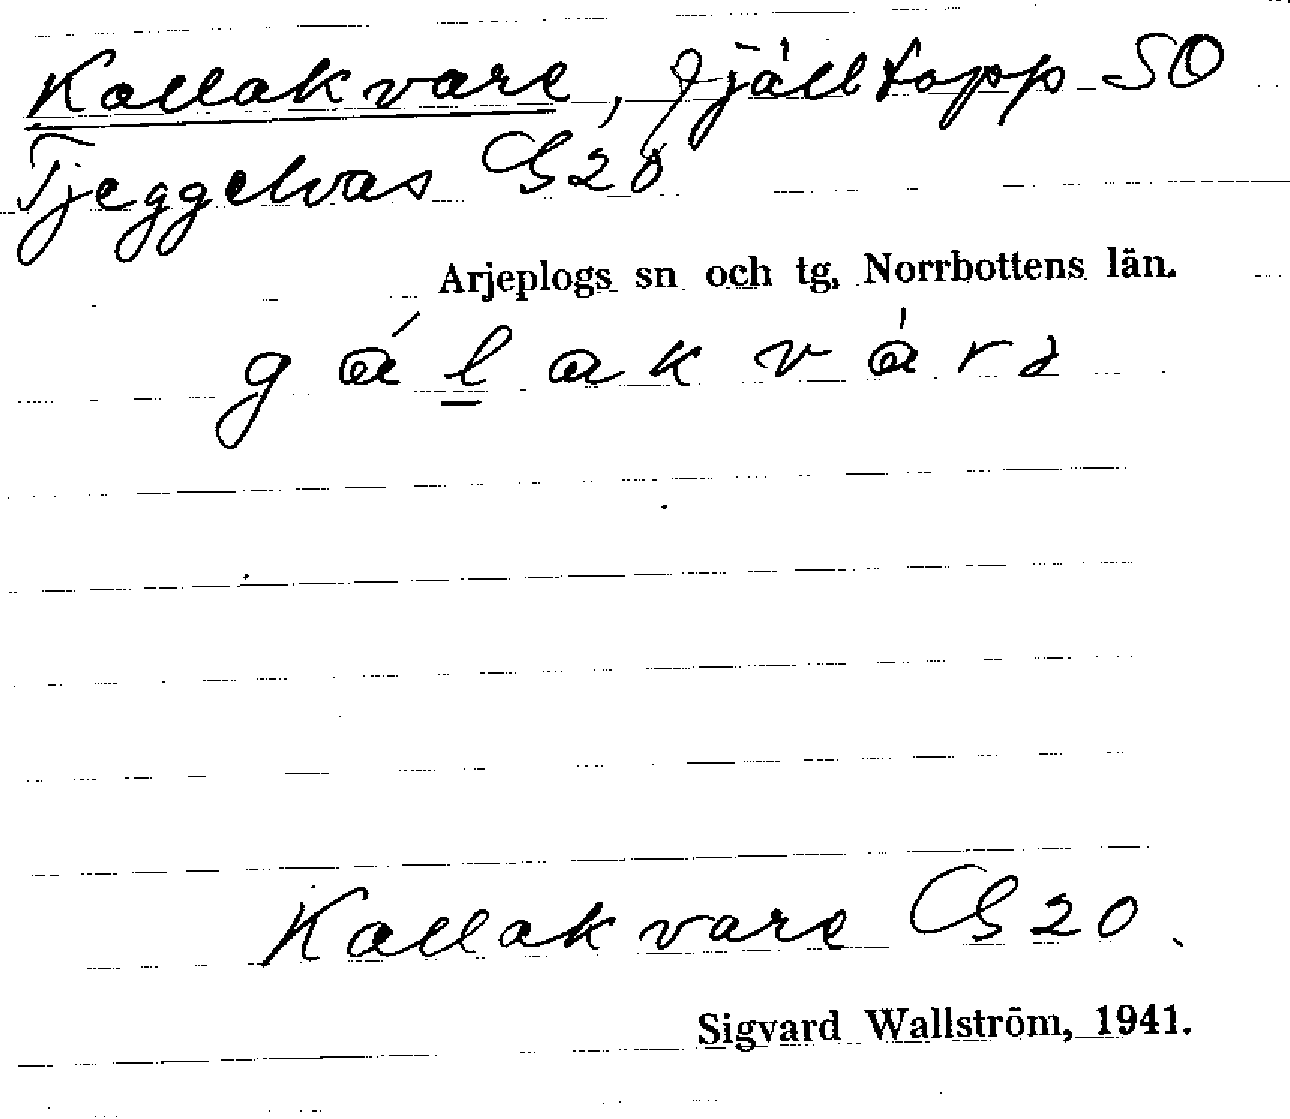 Kallakvare, fjälltopp SO
Tjeggelvas GS20
Arjeplogs sn och tg, Norrbottens län.
gálakvárɛ
Kallakvare GS20.
Sigvard Wallström, 1941.